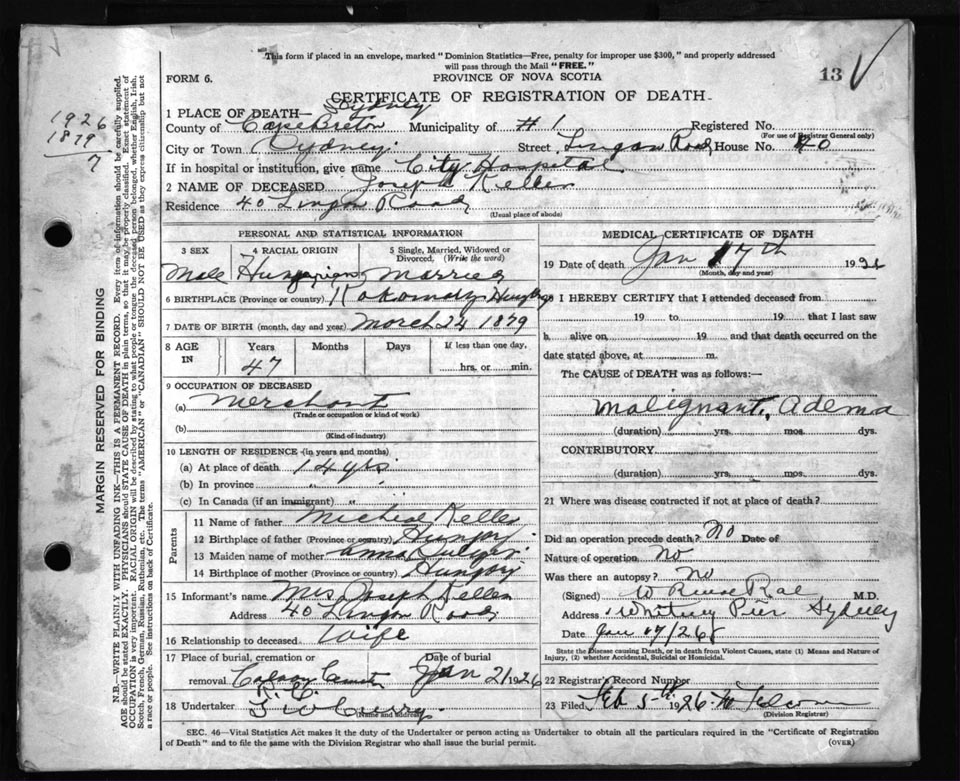 This form if placed in an envelope, marked "Dominion Statistics—Free, penalty for improper use $300," and properly addressed
will pass through the Mail "FREE."
FORM 6.
PROVINCE OF NOVA SCOTIA
13
CERTIFICATE OF REGISTRATION OF DEATH
1926
1879
7
Sydney
1 PLACE OF DEATH—
County of Cape Breton Municipality of #1 Registered No.
(For use of Registrar General only)
City or Town Sydney. Street Lingan Road House No. 40
If in hospital or institution, give name City Hospital
2 NAME OF DECEASED Joseph Keller
Residence 40 Lingan Road
(Usual place of abode)
PERSONAL AND STATISTICAL INFORMATION
3 SEX
4 RACIAL ORIGIN
5 Single, Married, Widowed or Divorced, (Write the word)
Male Hungarian Married
6 BIRTHPLACE (Province or country)
7 DATE OF BIRTH (month, day and year) March 24 1879
8 AGE IN
Years
Months
Days
If less than one day,
hrs. or min.
47
9 OCCUPATION OF DECEASED
(a) Merchant
(Trade or occupation or kind of work)
(b)
(Kind of industry)
10 LENGTH OF RESIDENCE (in years and months)
(a) At place of death 14 yrs.
(b) In province "
(c) In Canada (if an immigrant) "
Parents
11 Name of father Micheal Keller
12 Birthplace of father (Province or country) Hungary
13 Maiden name of mother Anna
14 Birthplace of mother (Province or country) Hungary
15 Informant's name Mrs Joseph Keller
Address 40 Lingan Road
16 Relationship to deceased Wife
17 Place of burial, cremation or removal
Date of burial
Jan 21 1926
18 Undertaker Curry.
(Name and address)
MEDICAL CERTIFICATE OF DEATH
19 Date of death Jan 17th 192
(Month, day and year)
I HEREBY CERTIFY that I attended deceased from
19 to 19 that I last saw
h alive on 19 and that death occurred on the
date stated above, at m.
The CAUSE of DEATH was as follows:—
Malignant Adema
(duration) yrs. mos. dys.
CONTRIBUTORY
(duration) yrs. mos. dys.
21 Where was disease contracted if not at place of death?
Did an operation precede death? No Date of
Nature of operation No
Was there an autopsy? No
(Signed) W Rae M.D.
Address Whitney Pier Sydney
Date Jan 17/26
State the Disease causing Death, or in death from Violent Causes, state (1) Means and Nature of
Injury, (2) whether Accidental, Suicidal or Homicidal.
22 Registrar's Record Number
23 Filed Feb 5th 1926
(Division Registrar)
SEC. 46—Vital Statistics Act makes it the duty of the Undertaker or person acting as Undertaker to obtain all the particulars required in the "Certificate of Registration
of Death" and to file the same with the Division Registrar who shall issue the burial permit.
(OVER)
MARGIN RESERVED FOR BINDING
N.B.—WRITE PLAINLY WITH UNFADING INK—THIS IS A PERMANENT RECORD. Every item of information should be carefully supplied.
AGE should be stated EXACTLY. PHYSICIANS should STATE CAUSE OF DEATH in plain terms, so that it may be properly classified. Exact statement of
OCCUPATION is very important. RACIAL ORIGIN will be described by stating to what people or tongue the deceased person belonged, whether English, Irish,
Scotch, French, German, Russian, Ruthenian, etc. The terms "AMERICAN" or "CANADIAN" SHOULD NOT BE USED as they express citizenship but not
a race or people. See instructions on back of Certificate.